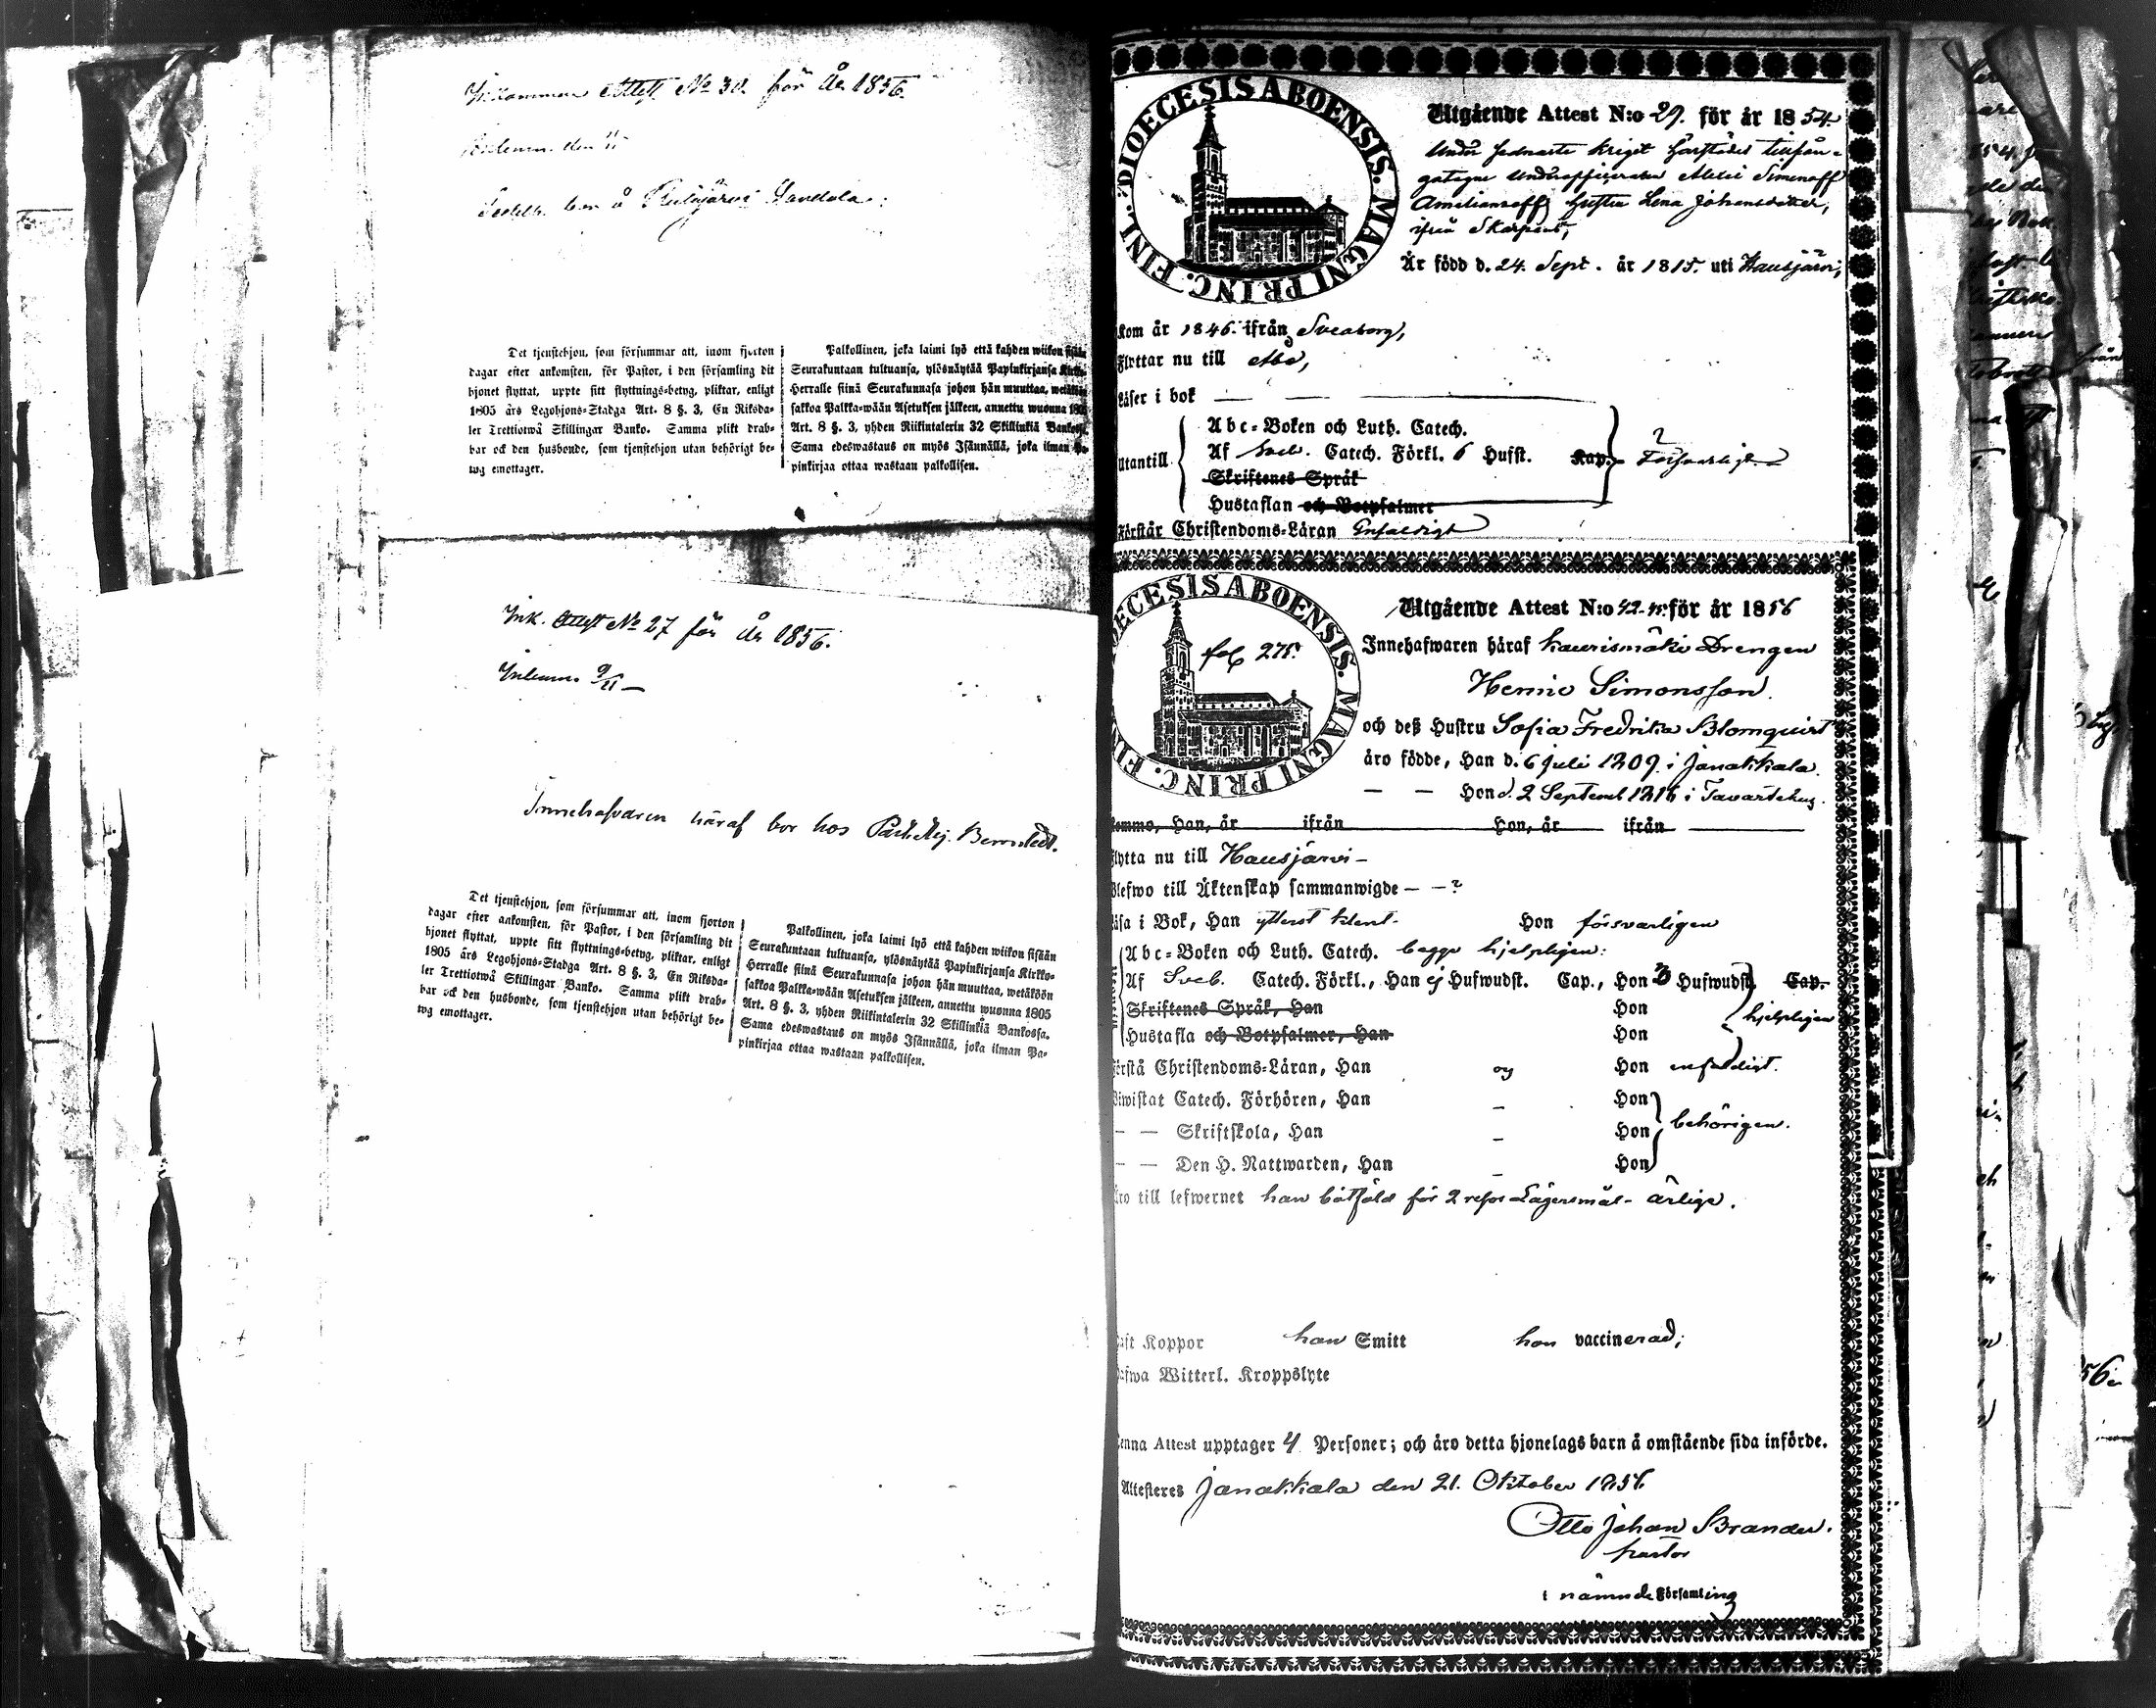 Inkommen Attest No 30. för År 1856.
Inkom. den 11
bor å
Det tjenstehjon, som försummar att, inom fjorton
dagar efter ankomsten, för Pastor, i den församling dit
hjonet flyttat, uppte sitt flyttnings-betyg, pliktar, enligt
1805 års Legohjons-Stadga Art. 8 §. 3, En Riksda-
ler Trettiotwå Skillingar Banko. Samma plikt drab-
bar ock den husbonde, som tjenstehjon utan behörigt be-
tyg emottager.
Palkollinen, joka laimi lyö että kahden wiikon sisään
Seurakuntaan tultuansa, ylösnäytää Papinkirjansa Kirkko-
Herralle siinä Seurakunnasa johon hän muuttaa, wetäköön
sakkoa Palkka-wään Asetuksen jälkeen, annettu wuonna 1805
Art. 8 §. 3, yhden Riikintalerin 32 Skillinkiä Bankossa.
Sama edeswastaus on myös Isännällä, joka ilman Pa-
pinkirjaa ottaa wastaan palkollisen.
Ink. Attest No 27 för År 1856.
Inkom. 9/11 –
Innehafvaren häraf bor hos
Det tjenstehjon, som försummar att, inom fjorton
dagar efter ankomsten, för Pastor, i den församling dit
hjonet flyttat, uppte sitt flyttnings-betyg, pliktar, enligt
1805 års Legohjons-Stadga Art. 8 §. 3, En Riksda-
ler Trettiotwå Skillingar Banko. Samma plikt drab-
bar ock den husbonde, som tjenstehjon utan behörigt be-
tyg emottager.
Palkollinen, joka laimi lyö että kahden wiikon sisään
Seurakuntaan tultuansa, ylösnäytää Papinkirjansa Kirkko-
Herralle siinä Seurakunnasa johon hän muuttaa, wetäköön
sakkoa Palkka-wään Asetuksen jälkeen, annettu wuonna 1805
Art. 8 §. 3, yhden Riikintalerin 32 Skillinkiä Bankossa.
Sama edeswastaus on myös Isännällä, joka ilman Pa-
pinkirjaa ottaa wastaan palkollisen.
DIOECESIS ABOENSIS. MAGNI PRINC. FINL.
Utgående Attest N:o 29. för år 1854.
Under sednaste kriget härstädes tillfån-
gatagne Underofficeraren Alexei Simenoff
Amilianoff hustru Lena Johansdotter,
ifrån Skarpans,
Är född d. 24. Sept. år 1815. uti Hausjärvi,
Kom år 1846. ifrån Sveaborg,
Flyttar nu till Åbo,
Läser i bok — — —
Utantill
Abc-Boken och Luth. Catech.
Af Sveb. Catech. Förkl. 6 Hufst. Kap. Försvarligt
Skriftenes Språk
Hustaflan och Botpsalmer
Förstår Christendoms-Läran Enfaldigt
DIOECESIS ABOENSIS. MAGNI PRINC. FINL.
fol 275.
Utgående Attest N:o 42. för år 1856
Innehafwaren häraf Kaurismäki Drengen
Henric Simonsson
och deß Hustru Sofia Fredrika Blomquist
äro födde, Han d. 6 Juli 1809. i Janakkala.
— — Hon d. 2 Septemb 1816 i Tavastehus.
Kommo, Han, år ifrån Hon, år ifrån
Flytta nu till Hausjärvi –
Blefwo till Äktenskap sammanwigde — — ?
Läsa i Bok, Han ytterst klent. Hon försvarligen
Abc-Boken och Luth. Catech. begge hjelpligen.
Af Sveb. Catech. Förkl., Han ej Hufwudst. Cap., Hon 3 Hufwudst. Cap.
Skriftenes Språk, Han Hon hjelpligen
Hustafla och Botpsalmer, Han Hon
Förstå Christendoms-Läran, Han og Hon enfaldigt.
Biwistat Catech. Förhören, Han – Hon
— — Skriftskola, Han – Hon behörigen.
— — Den H. Nattwarden, Han – Hon
Äro till lefwernet han bötfäld för 2 resor Lägersmål – ärlige.
Haft Koppor han Smitt hon vaccinerad;
Hafwa Witterl. Kroppslyte
Denna Attest upptager 4 Personer; och äro detta hjonelags barn å omstående sida införde.
Attesteres Janakkala den 21. Oktober 1856
Otto Johan Brander.
pastor
i nämnde Församling